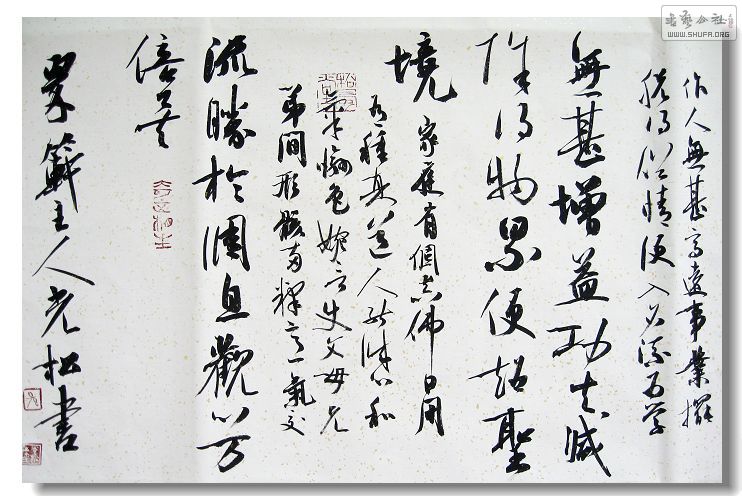 书艺公社
WWW.SHUFA.ORG
作人無甚高遠事業擺
脫得俗情便入名流為學
無甚增益功夫減
除得物累便超聖
境
家庭有個真佛日用
有種真道人能誠心和
氣愉色婉言使父母兄
弟間形骸兩釋意氣交
流勝於調息觀心萬
倍矣
主人光松書